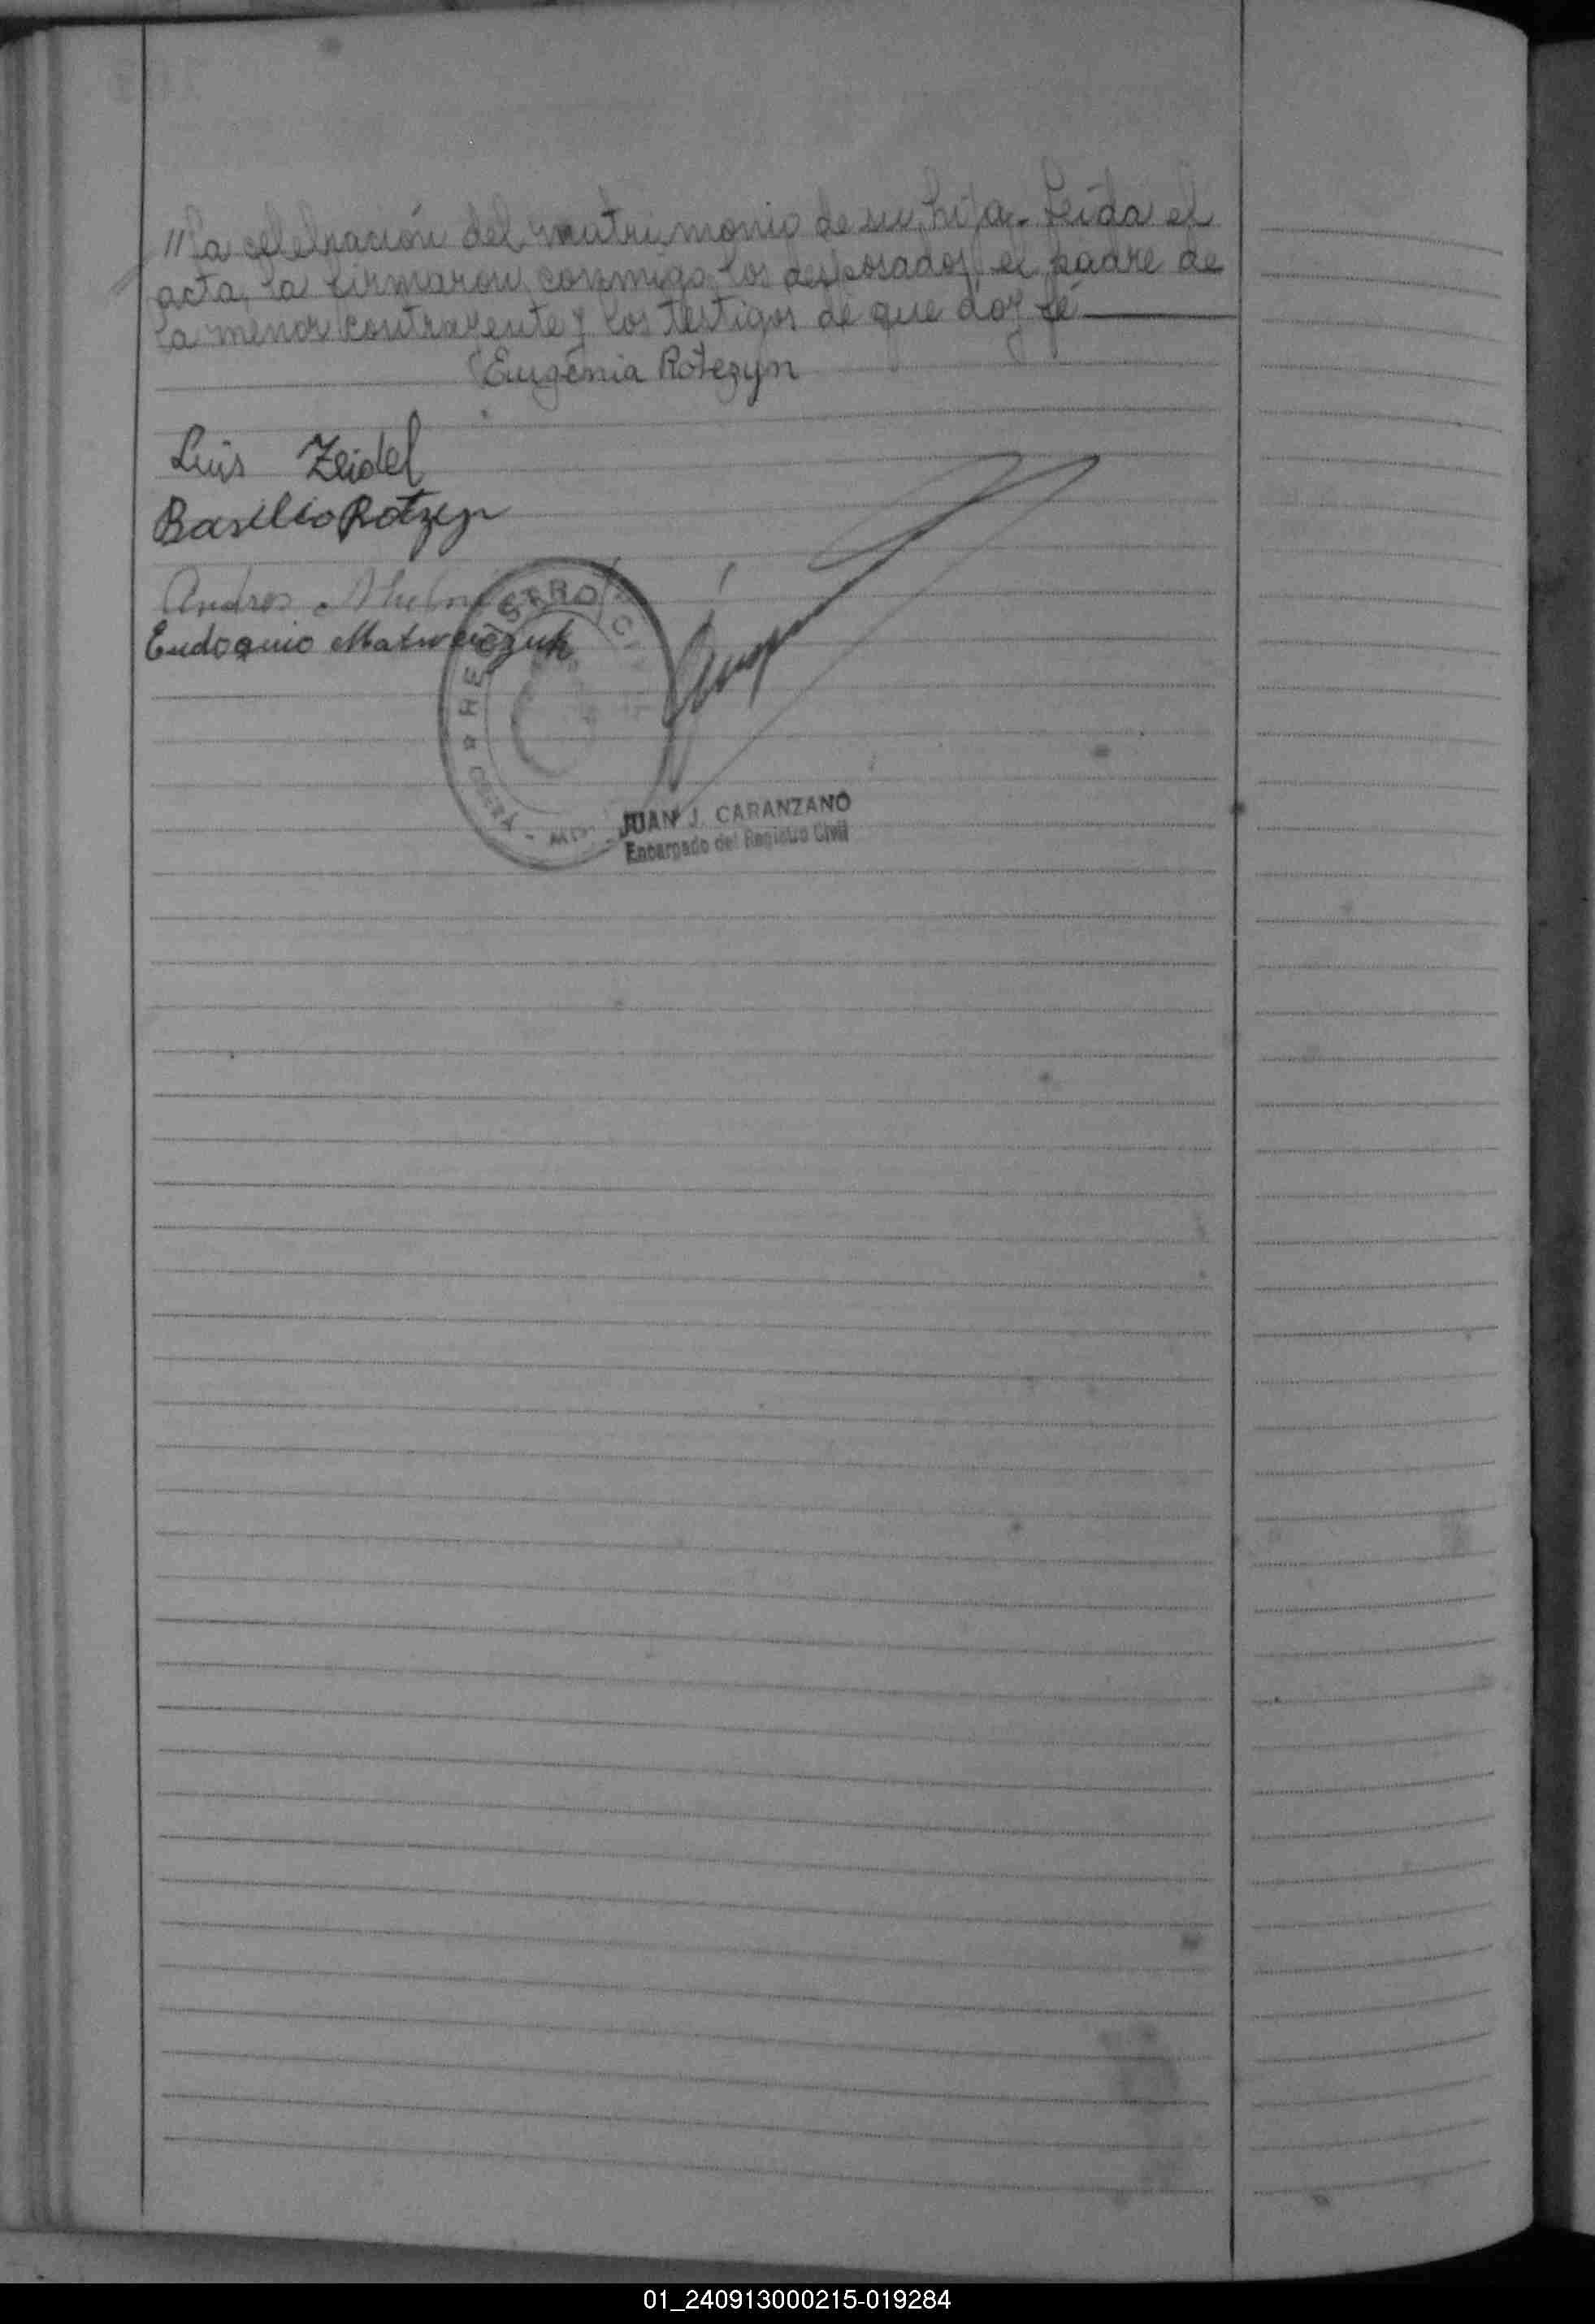 //la celebración del matrimonio de su hija.- Leída el
acta, la firmaron conmigo los desposados, el padre de
la menor contrayente y los testigos de que doy fé
Eugenia Rotezyn
Luis Zeidel
Basilio Rotzyn
Andres
Eudoquio Matwieiczuk
REGISTRO CI
OBERA
JUAN J. CARANZANO
Encargado del Registro Civil
01_240913000215-019284